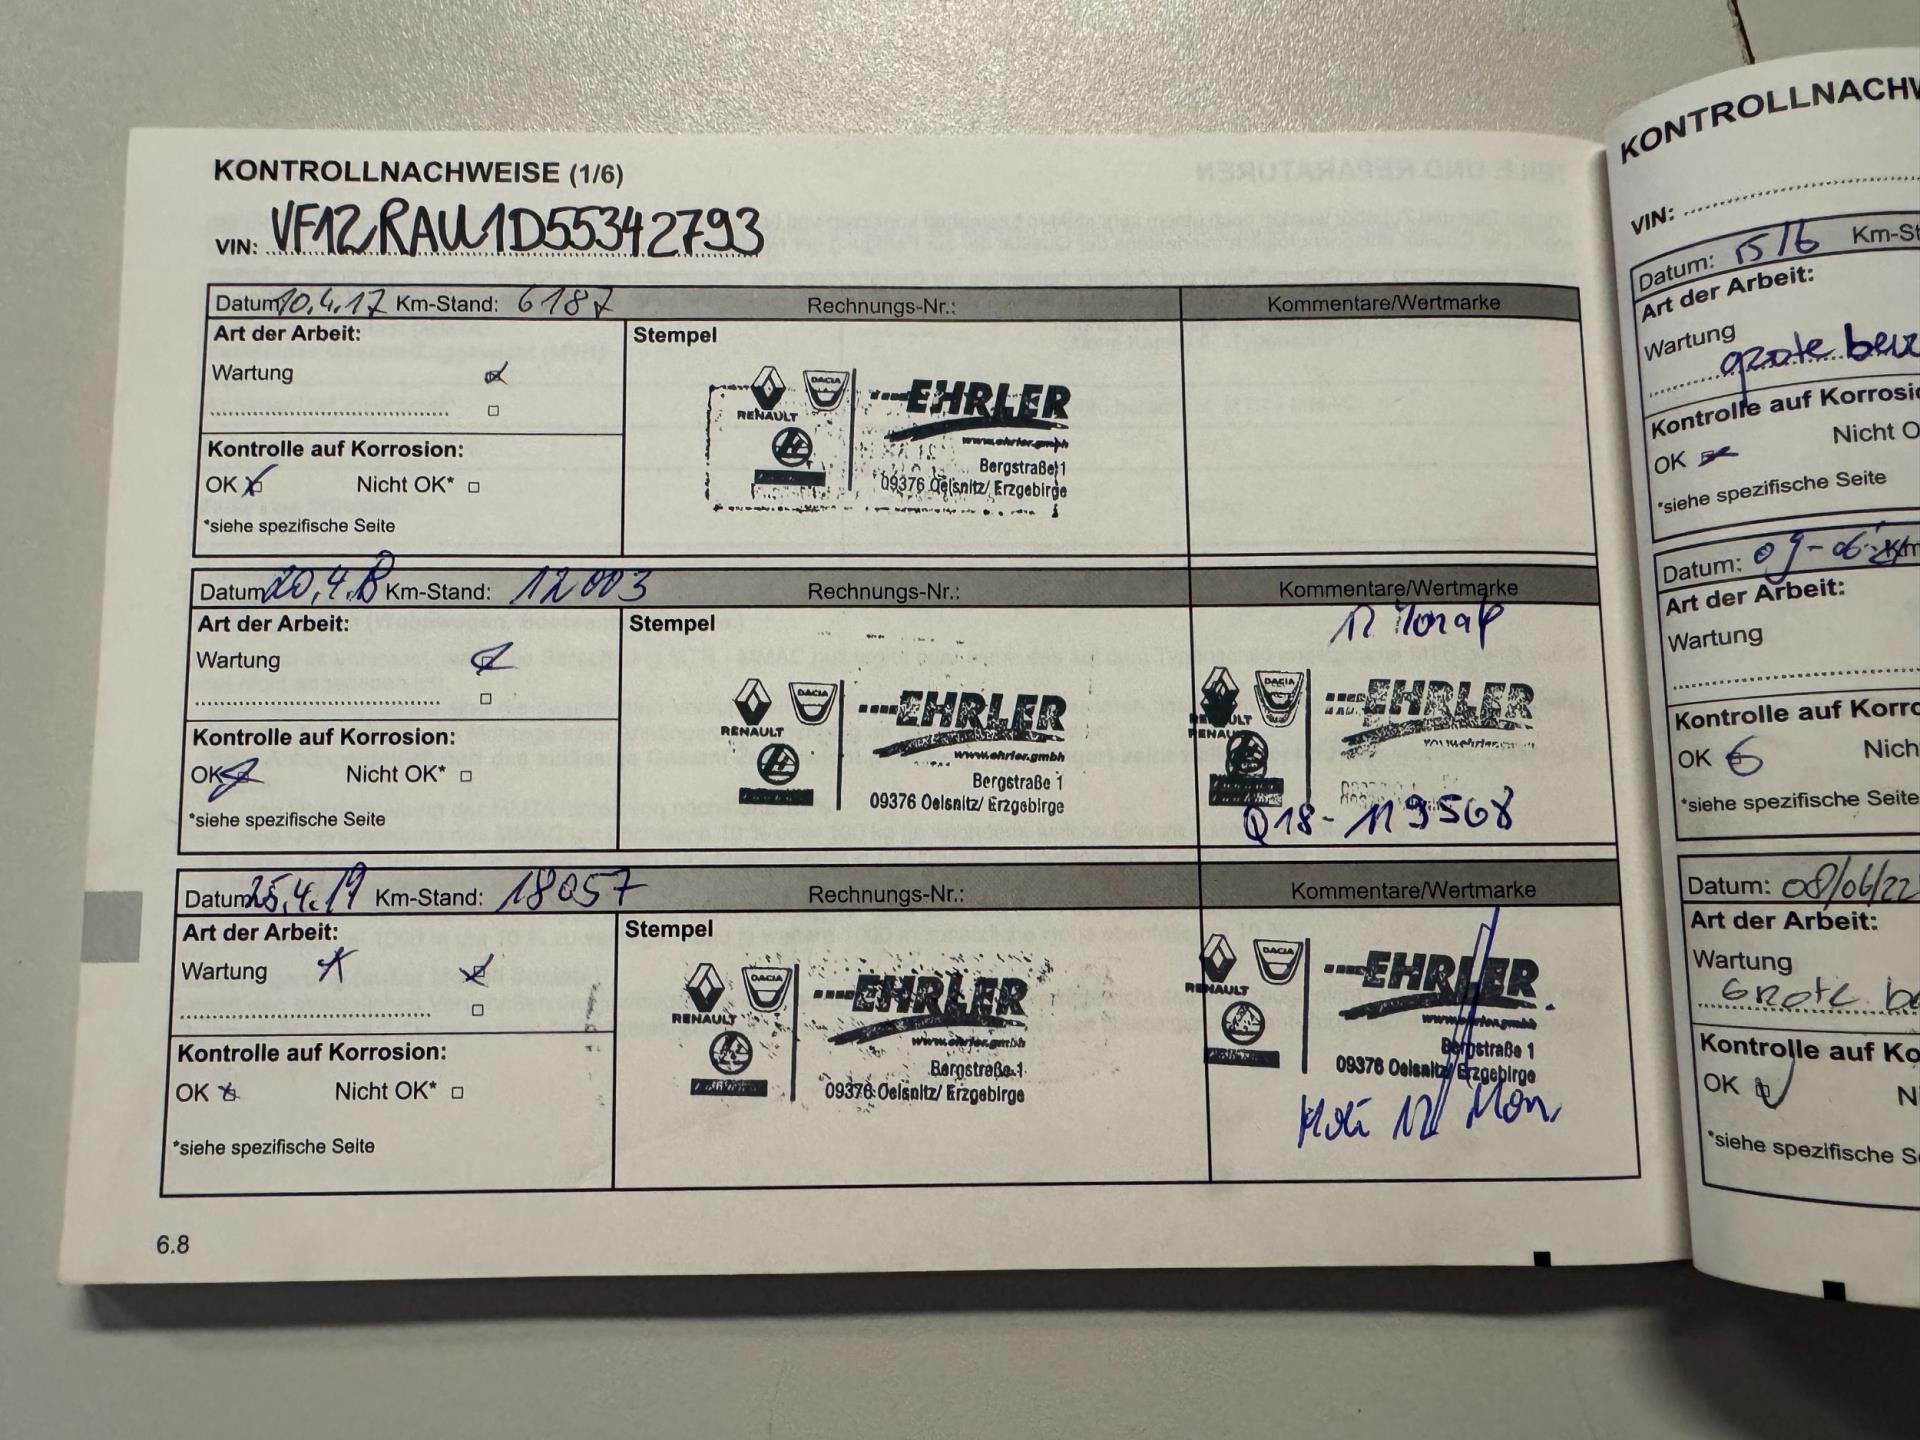 KONTROLLNACHWEISE (1/6)
VIN: VF12RAU1D55342793
Datum: 10.4.17 Km-Stand: 6187 Rechnungs-Nr.: Kommentare/Wertmarke
Art der Arbeit: Stempel
Wartung
RENAULT DACIA EHRLER
www.ehrler.gmbh
Kontrolle auf Korrosion:
Bergstraße 1
OK Nicht OK*
09376 Oelsnitz/ Erzgebirge
*siehe spezifische Seite
Datum: 20.4.18 Km-Stand: 12003 Rechnungs-Nr.: Kommentare/Wertmarke
Art der Arbeit: Stempel
12
Wartung
RENAULT DACIA EHRLER
www.ehrler.gmbh
RENAULT DACIA EHRLER
www.ehrler.gmbh
Kontrolle auf Korrosion:
Bergstraße 1
OK Nicht OK*
09376 Oelsnitz/ Erzgebirge
Q18-119568
*siehe spezifische Seite
Datum: 25.4.19 Km-Stand: 18057 Rechnungs-Nr.: Kommentare/Wertmarke
Art der Arbeit: Stempel
Wartung
RENAULT DACIA EHRLER
www.ehrler.gmbh
RENAULT DACIA EHRLER
www.ehrler.gmbh
Kontrolle auf Korrosion:
Bergstraße 1
09376 Oelsnitz/ Erzgebirge
Bergstraße 1
09376 Oelsnitz/ Erzgebirge
OK Nicht OK*
Mobi 12 Mon,
*siehe spezifische Seite
6.8
KONTROLLNACHW
VIN:
Datum: Km-St
Art der Arbeit:
Wartung
grote beu
Kontrolle auf Korrosio
OK Nicht O
*siehe spezifische Seite
Datum: 09-06- Km
Art der Arbeit:
Wartung
Kontrolle auf Korro
OK Nich
*siehe spezifische Seite
Datum: 08/06/22
Art der Arbeit:
Wartung
Grote be
Kontrolle auf Ko
OK N
*siehe spezifische S